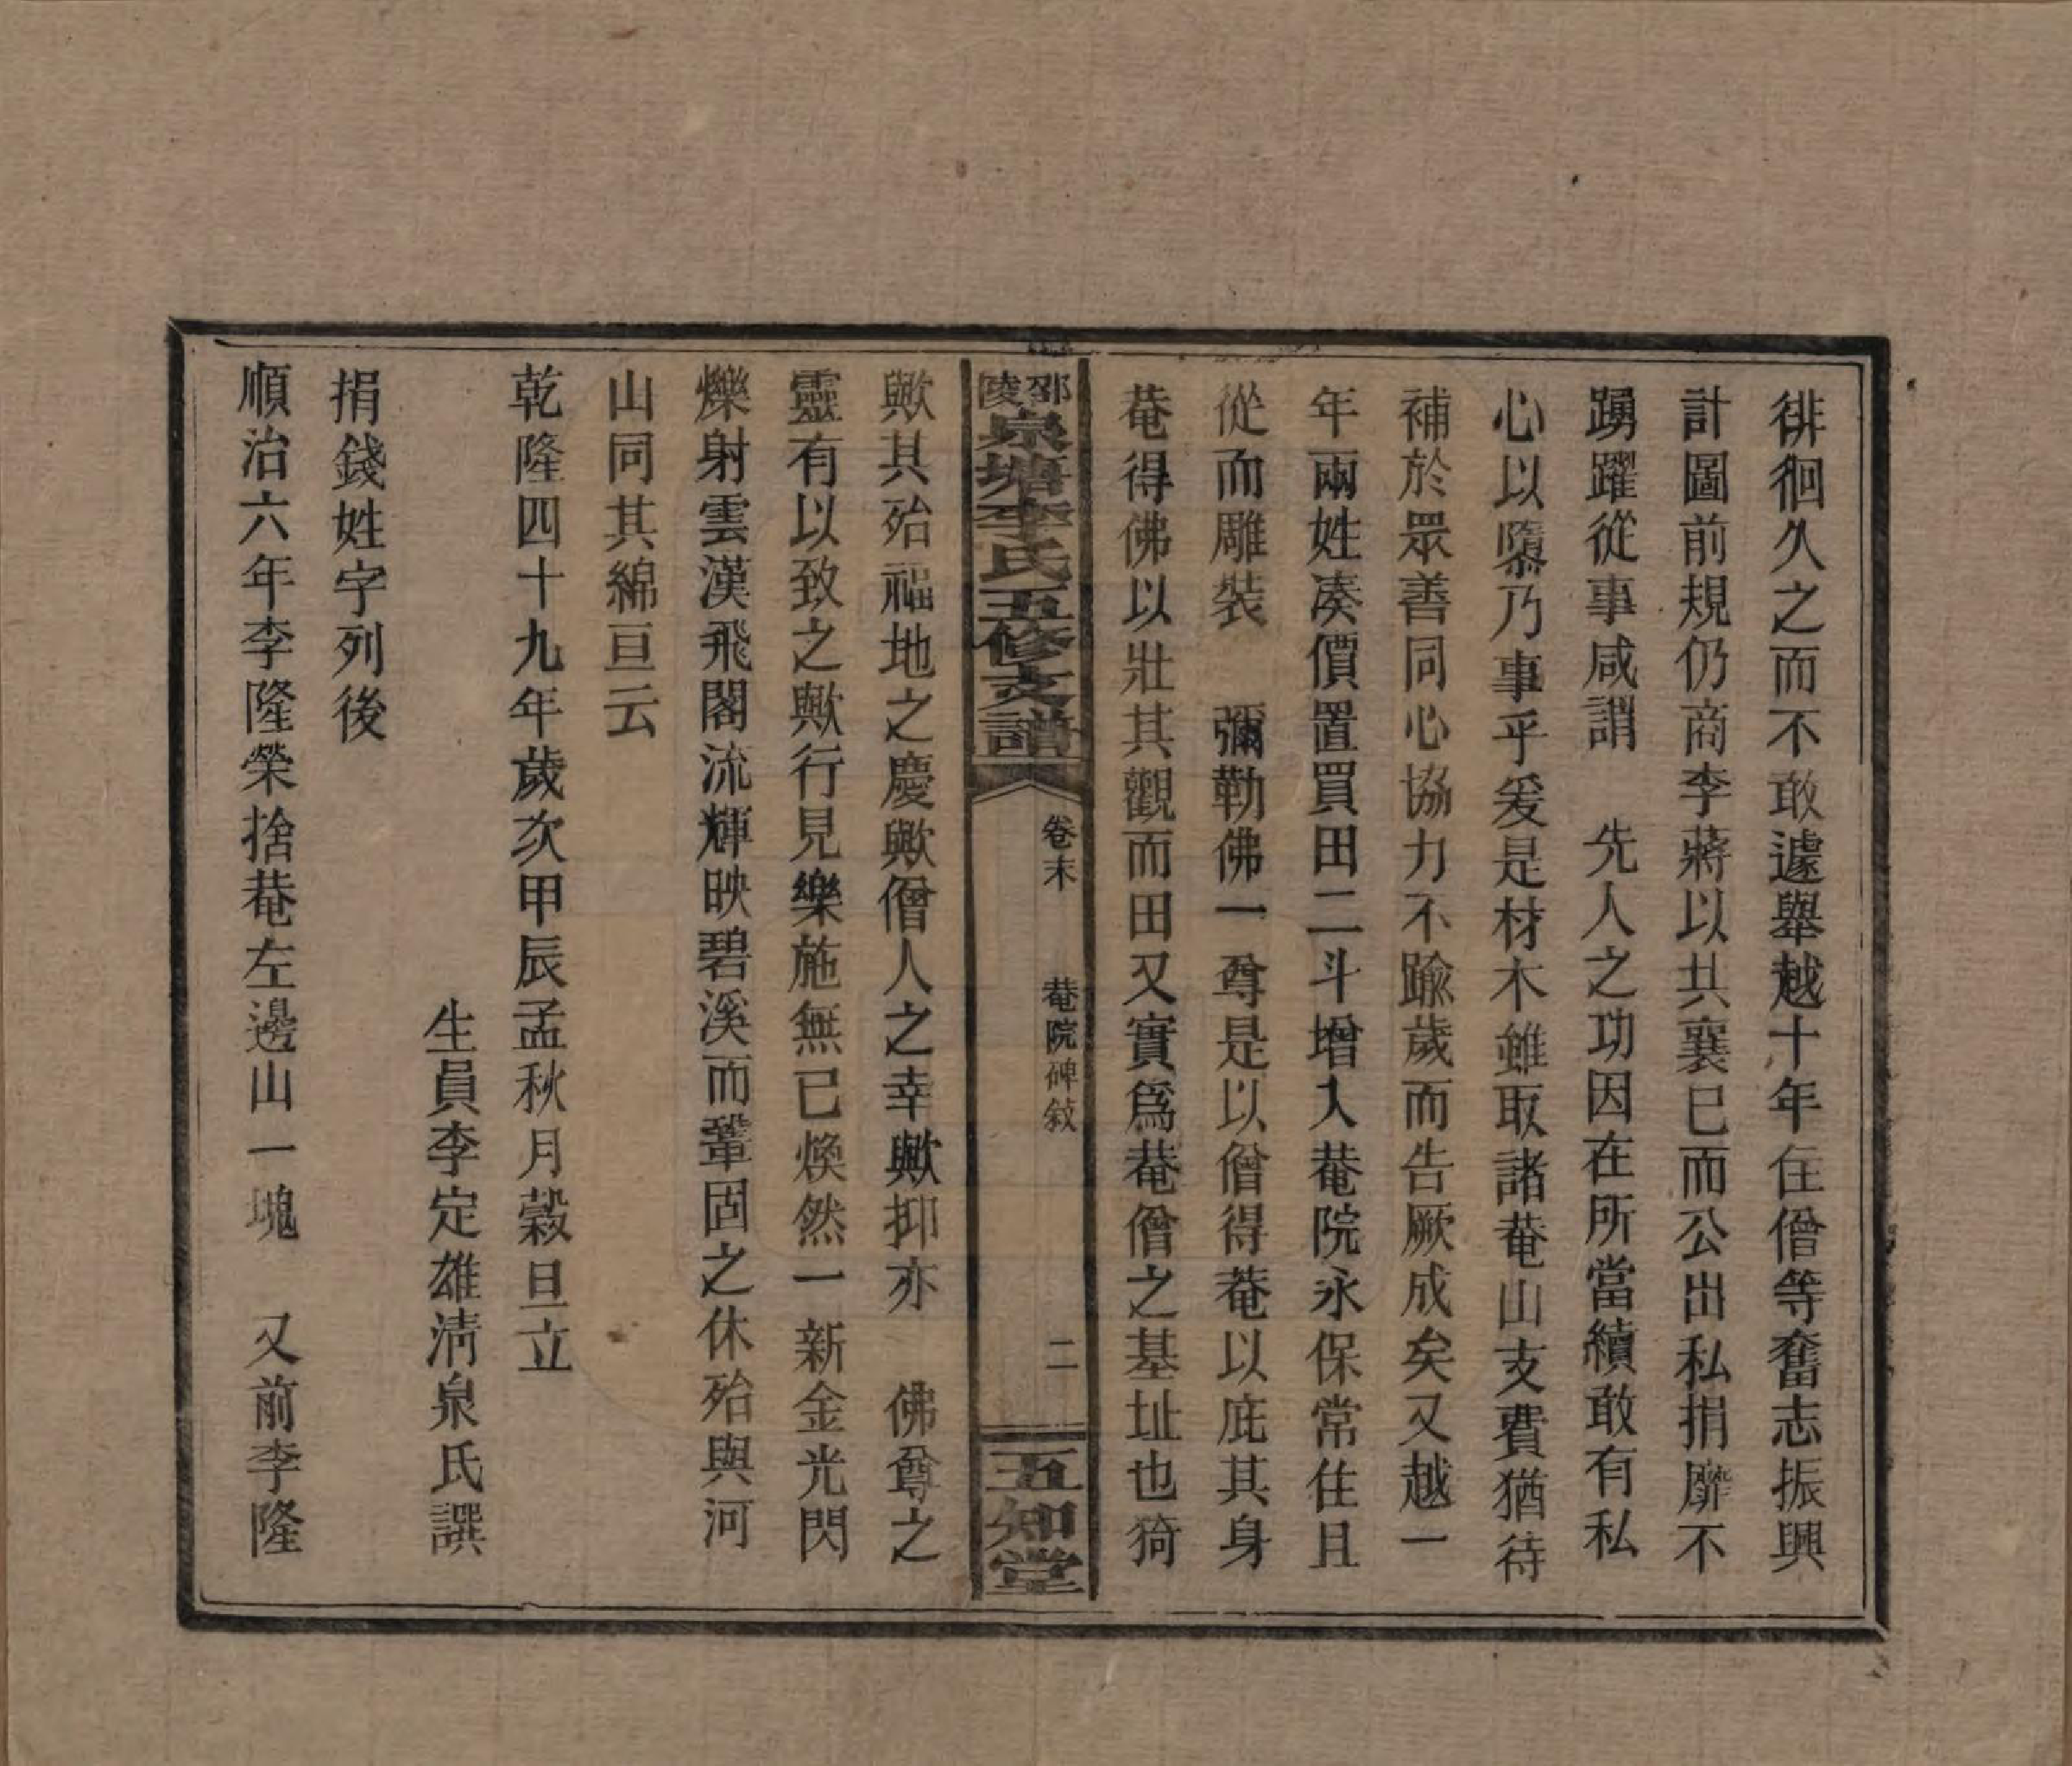 徘徊久之而不敢遽舉越十年住僧等奮志振興
計圖前規仍商李蔣以共襄已而公出私捐靡不
踴躍從事咸謂　先人之功因在所當續敢有私
心以隳乃事乎爰是材木雖取諸菴山支費猶待
補於眾善同心協力不踰歲而告厥成矣又越一
年兩姓凑價置買田二斗增入菴院永保常住且
從而雕裝　彌勒佛一尊是以僧得菴以庇其身
菴得佛以壯其觀而田又實爲菴僧之基址也猗
邵陵泉塘李氏五修支譜
卷末　菴院碑敍　二
五知堂
歟其殆福地之慶歟僧人之幸歟抑亦　佛尊之
靈有以致之歟行見樂施無已煥然一新金光閃
爍射雲漢飛閣流輝映碧溪而鞏固之休殆與河
山同其綿亘云
乾隆四十九年歲次甲辰孟秋月穀旦立
生員李定雄清泉氏譔
捐錢姓字列後
順治六年李隆榮捨菴左邊山一塊　又前李隆